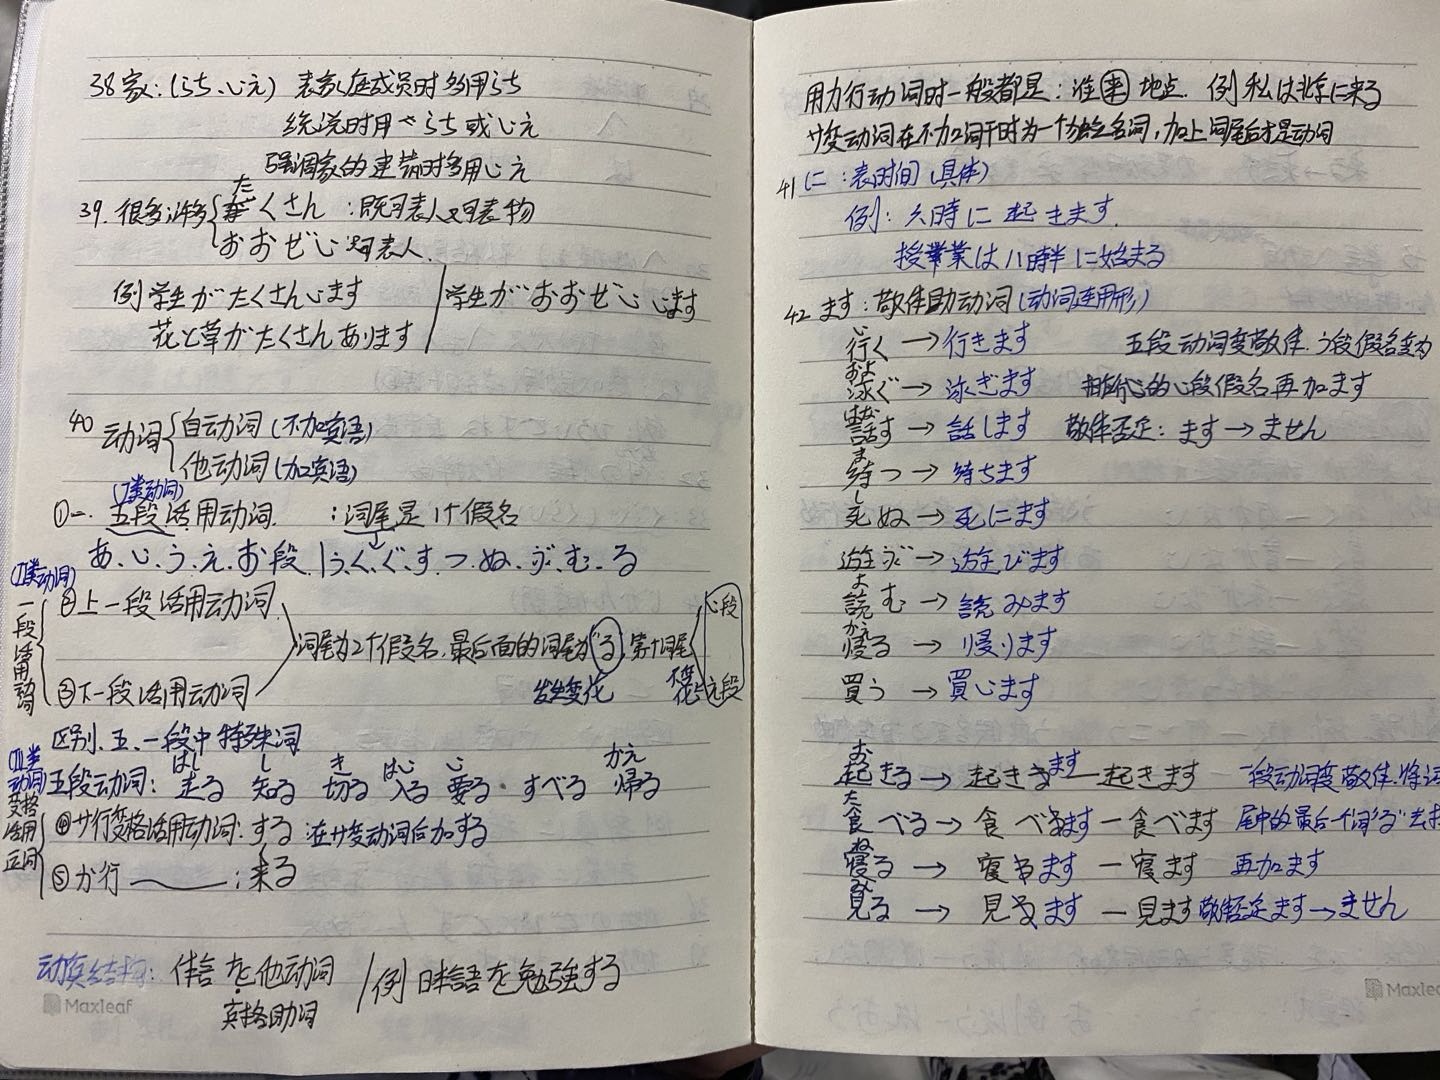 38 家：(うち、いえ) 表家庭成员时多用うち
统说时用 うち或いえ
强调家的建筑时多用いえ
39. 很多许多 たくさん：既可表人又可表物
おおぜい 只可表人.
例 学生がたくさんいます
学生がおおぜいいます
花と草がたくさんあります
40 动词 自动词(不加宾语)
他动词(加宾语)
(I类动词)
①一. 五段活用动词. ：词尾是1个假名
あ、い、う、え、お段 う、く、ぐ、す、つ、ぬ、ぶ、む、る
(II类动词)
一段活用动词
②上一段活用动词
词尾为2个假名,最后面的词尾为"る",第1个词尾 い段 え段
发生变化 不变化
③下一段活用动词
区别、五、一段中特殊词
はし し き はい い かえ
五段动词：走る 知る 切る 入る 要る・すべる 帰る
(III类动词)
变格活用动词
④サ行变格活用动词：する 在サ变动词后加する
⑤か行 ：来る
动宾结构：体言 を他动词 / 例 日本語を勉強する
宾格助词
Maxleaf
用力行动词时一般都是：谁 来 地点. 例 私は北京に来る
サ变动词在不加词干时为一个独立名词，加上词尾后才是动词
41 に：表时间 (具体)
例：六時に起きます.
授業は八時半に始まる
42 ます：敬体助动词(动词连用形)
い
行く → 行きます 五段动词变敬体.う段假名变为
およ
泳ぐ → 泳ぎます 相对应的い段假名再加ます
はな
話す → 話します 敬体否定：ます→ません
ま
待つ → 待ちます
し
死ぬ → 死にます
遊ぶ → 遊びます
よ
読む → 読みます
かえ
帰る → 帰ります
買う → 買います
お
起きる → 起きるます — 起きます 一段动词变敬体.将词
た
食べる → 食べるます — 食べます 尾中的最后一个词"る"去掉
ね
寝る → 寝るます — 寝ます 再加ます
み
見る → 見るます — 見ます 敬体否定ます→ません
Maxlea